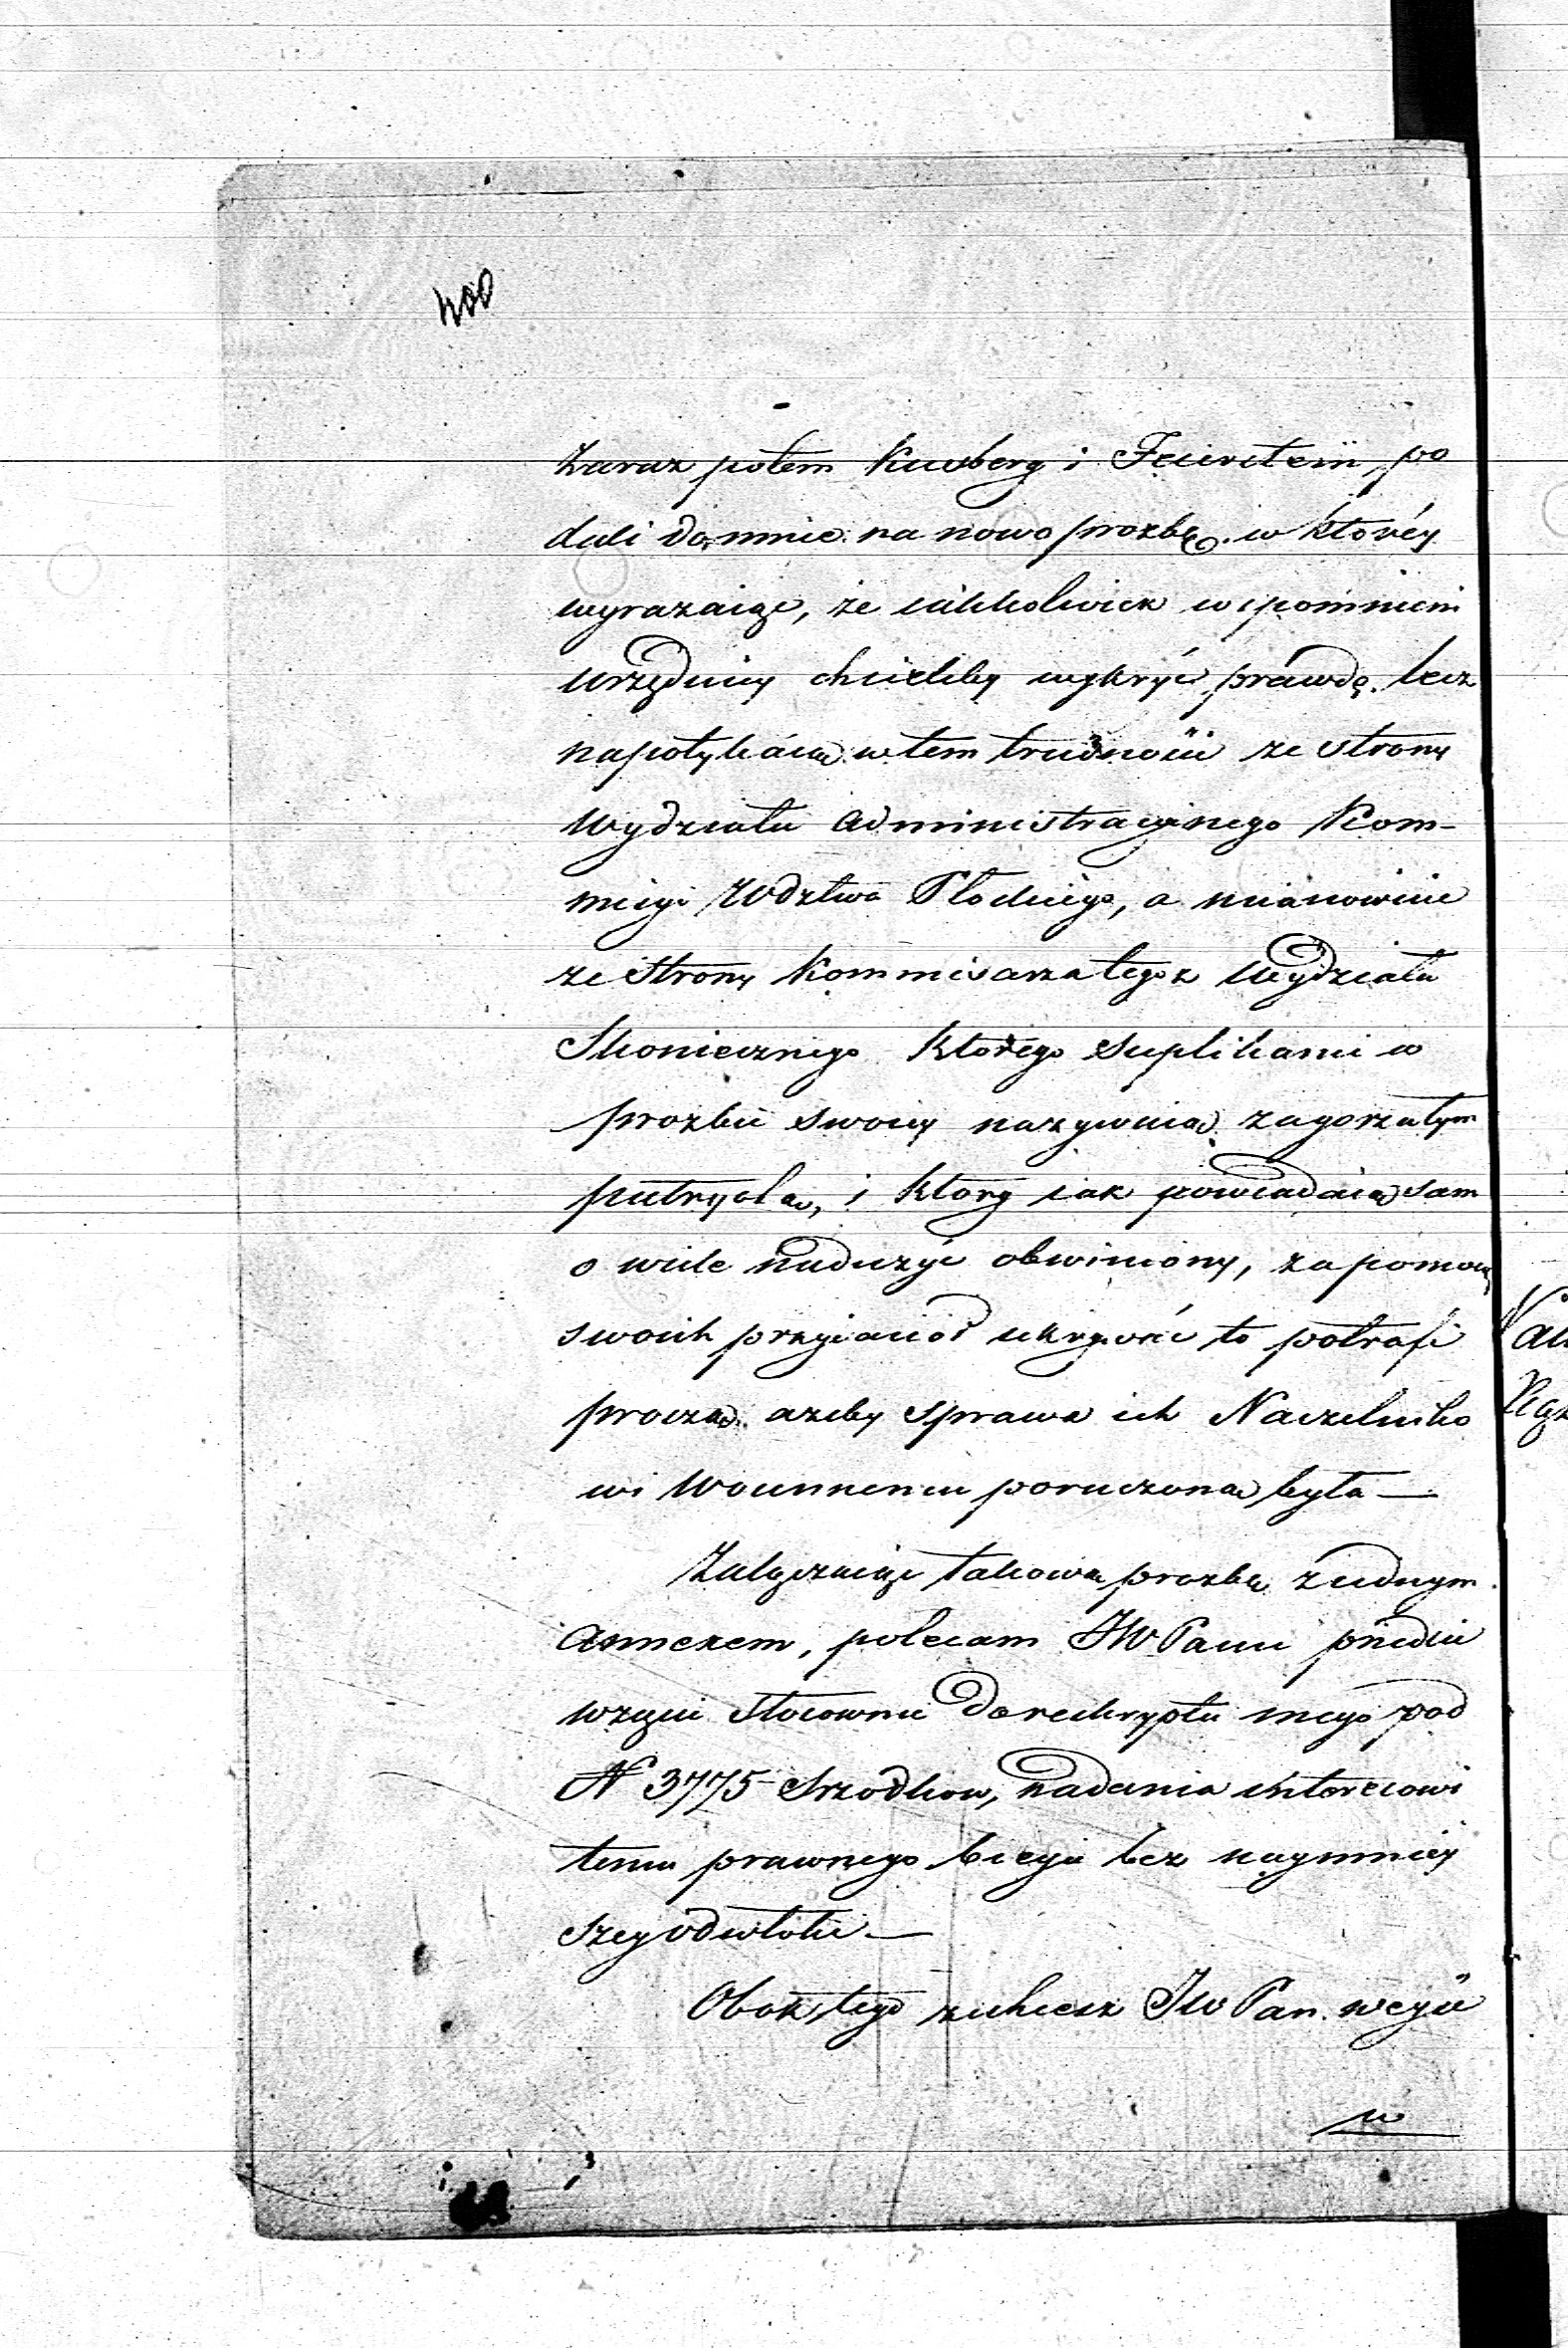 400
Zaraz potem Kuoberg i Feierstein, po
dali do mnie na nowo prozbę w któréy
wyrazaiąc, że iakkolwiek wspomnieni
urzędnicy chcieliby wykryć prawdę lecz
napotykaią w tem trudności ze strony
Wydziału Administracyinego Kom-
missyi Wdztwa Płockiego, a mianowicie
ze strony Kommissarza tegoz Wydziału
Skoniecznego którego suplikanci w
prozbie swoiey nazywaią zagorzałym
putryolą, i który iak powiadaią sam
o wiele nadużyć obwiniony, za pomocą
swoich przyiaciół ukrywać to potrafi
proszą azeby sprawa ich Naczelniko
wi Woiennemu poruczoną była —
Załączaiąc takową prozbę z iednym
Annexem, polecam JW Panu przedsię
wzięcie stosownie do reskryptu mego pod
N 3775 srzodków, nadania interessowi
temu prawnego biegu bez naymniéy
szey odwłoki —
Obok tego zechcesz JW Pan weyść
w